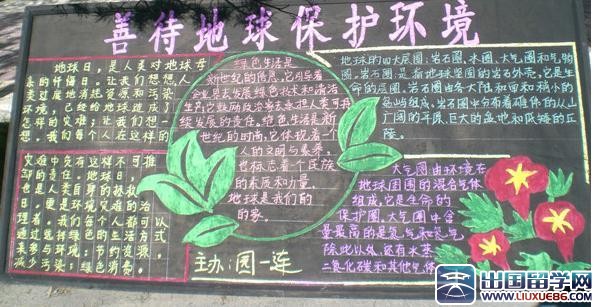 善待地球保护环境
地球日，是人类对地球母
亲的忏悔日，让我们想想人
类过度地消耗资源和污染
环境，已经给地球造成了
怎样的灾难；让我们想一
想，我们每个人在这样的
灾难中负有这样不可推
卸的责任。地球日，
也是人类自身的拯救
日，更是环境灾难的治
理者。我们每个人都可以
通过选择绿色的生活方式
来参与环境：节约资源
减少污染；绿色消费。
绿色生活是
新世纪的信息，它引导着
企业界去发展绿色技术和清洁
生产；它鼓励政治家去承担人类可持
续发展的责任。绿色生活是新
世纪的时尚，它体现着一个
人的文明与素养，
也标志着一个民族
的素质和力量。
地球是我们的
家。
主办：园一连
地球的四大层圈：岩石圈、水圈、大气圈和生物
圈。岩石圈：是指地球坚固的岩石外壳，它是生
命的层圈。岩石圈由各大陆和面和稍小的
岛屿组成，岩石圈中分布着雄伟的火山
广阔的平原、巨大的盆地和低矮的丘
陵。
大气圈由环境在
地球周围的混合气体
组成，它是生命的
保护圈。大气圈中含
量最高的是氮气和氧气
除此以外，还有水蒸
二氧化碳和其他气体
出国留学网
WWW.LIUXUE86.COM